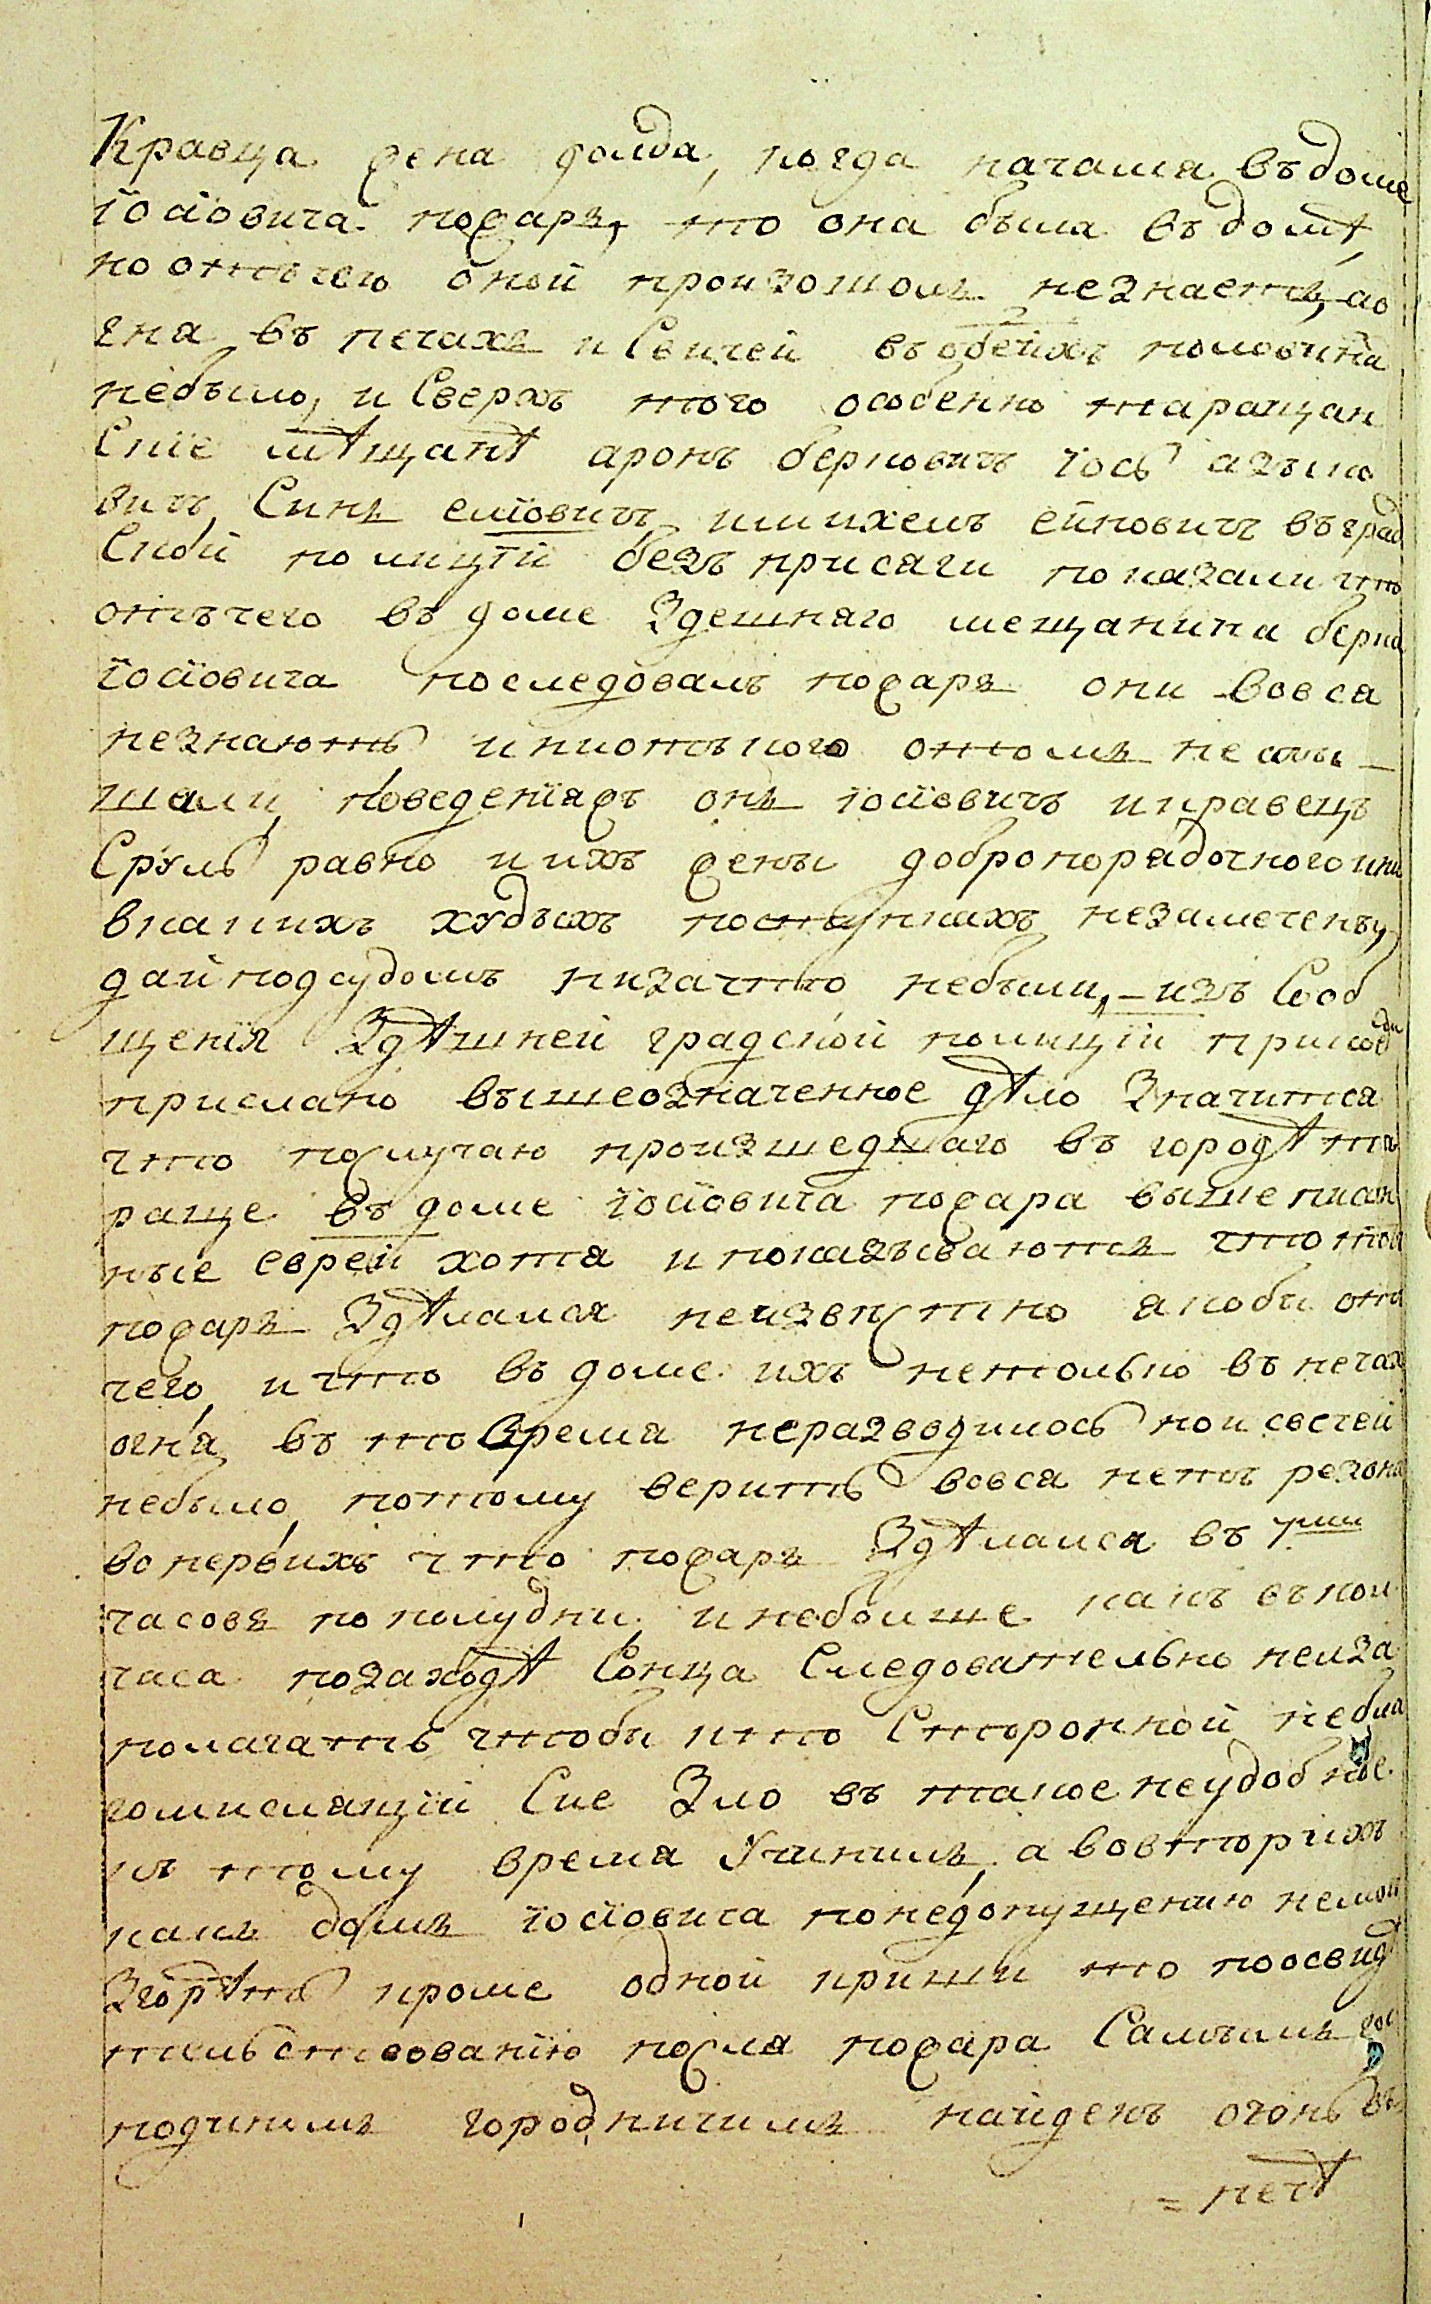 Кравца жена голда, когда начался въ доме
Іосіовича пожаръ, то она была въ домѣ,
но отъ чего оной произошолъ незнаетъ, ао
гна въ печахъ и Свичей въ обеихъ половина
небыло, и Сверхъ того особенно таращан
Скіе мѣщанѣ аронъ берковичъ Іось азъко
вичъ, Сикъ еліовичъ, и михель ейновичъ въ град
Ской полиціи безъ присяги показали что
отъ чего въ доме Здешняго мещанина берка
Іосіовича последовалъ пожаръ они вовся
незнаютъ и ниотъкого отомъ неслы
шали, поведеніяжъ онъ Іосіовичъ и кравецъ
Сруль равно и ихъ жены добропорядочного и ни
вкакихъ худыхъ поступкахъ незамечены,
даи подсудомъ низачто небыли, – изъ Сооб
щенія Здѣшней градской полиціи при коем
прислано вышеозначенное дѣло Значится
что послучаю произшедшаго въ городѣ та
раще въ доме Іосіовича пожара вышеписан
ные евреи хотя и показъсваются что той
пожаръ Здѣлался неизвестно якобы отъ
чего, и что въ доме ихъ нетолько въ печах
огня, въ то Время неразводилось но и свечей
небыло, потому верить вовся нетъ резона
вопервихъ что пожаръ Здѣлался въ 7ми
часовъ пополудни, и неболше какъ въ пол
часа позаходѣ Сонца Следователно нелза
полагать чтобы кто Сторонной небла
гомислящій Сие Зло въ такое неудобное
къ тому время Учинилъ, а вовторихъ
какъ домъ Іосіовича понедопущению немог
Згорѣть кроме одной криши то поосвидѣ
тельствованію после пожара Самимъ гос
подиномъ городничимъ найденъ огонь въ
= печѣ